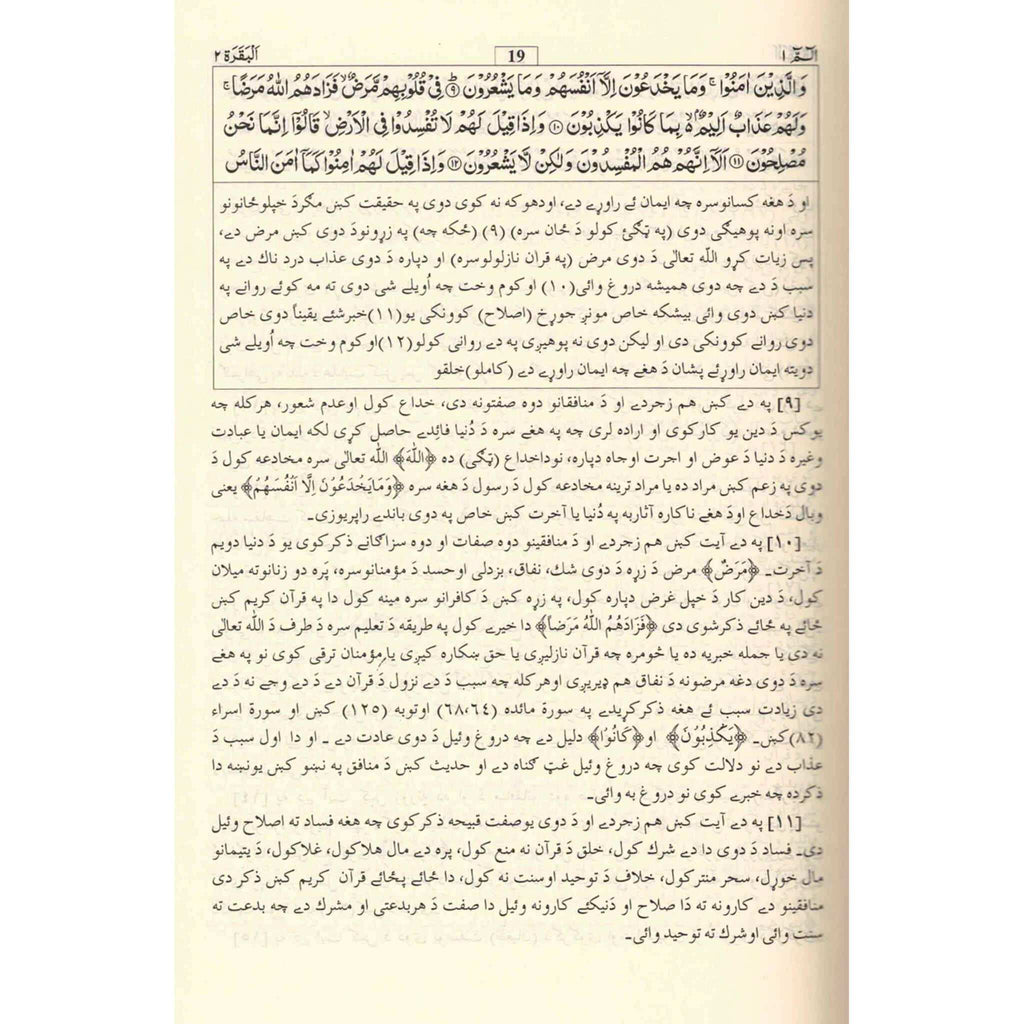 الٓمّٓ ١ 19 اَلْبَقَرَة ٢
وَالَّذِيْنَ اٰمَنُوْا ۚ وَمَا يَخْدَعُوْنَ اِلَّآ اَنْفُسَهُمْ وَمَا يَشْعُرُوْنَ ۹ؕ فِىْ قُلُوْبِهِمْ مَّرَضٌ ۙ فَزَادَهُمُ اللّٰهُ مَرَضًا ۚ
وَلَهُمْ عَذَابٌ اَلِيْمٌ ۙ۬ بِمَا كَانُوْا يَكْذِبُوْنَ ۱۰ وَاِذَا قِيْلَ لَهُمْ لَا تُفْسِدُوْا فِى الْاَرْضِ ۙ قَالُوْٓا اِنَّمَا نَحْنُ
مُصْلِحُوْنَ ۱۱ اَلَآ اِنَّهُمْ هُمُ الْمُفْسِدُوْنَ وَلٰكِنْ لَّا يَشْعُرُوْنَ ۱۲ وَاِذَا قِيْلَ لَهُمْ اٰمِنُوْا كَمَآ اٰمَنَ النَّاسُ
او دَ هغه كسانوسره چه ايمان ئے راوړے دے، اودهوكه نه كوى دوى په حقيقت كښ مګردَ خپلوځانونو
سره اونه پوهيګى دوى (په ټګئ كولو دَ ځان سره) (٩) (ځكه چه) په زړونودَ دوى كښ مرض دے،
پس زيات كړو اللّه تعالىٰ دَ دوى مرض (په قران نازلولوسره) او دپاره دَ دوى عذاب درد ناك دے په
سبب دَ دے چه دوى هميشه دروغ وائى(١٠) اوكوم وخت چه اُويلے شى دوى ته مه كوئے روانے په
دنيا كښ دوى وائى بيشكه خاص مونږ جوړخ (اصلاح) كوونكى يو(١١)خبرشئے يقيناً دوى خاص
دوى روانے كوونكى دى او ليكن دوى نه پوهيږى په دے روانى كولو(١٢)اوكوم وخت چه اُويلے شى
دويته ايمان راوړئے پشان دَ هغے چه ايمان راوړے دے (كاملو)خلقو
[٩] په دے كښ هم زجردے او دَ منافقانو دوه صفتونه دى، خداع كول اوعدم شعور، هركله چه
يوكس دَ دين يو كاركوى او اراده لرى چه په هغے سره دَ دُنيا فائدے حاصل كړى لكه ايمان يا عبادت
وغيره دَ دنيا دَ عوض او اجرت اوجاه دپاره، نوداخداع (ټګى) ده ﴿اللّٰهَ﴾ اللّه تعالىٰ سره مخادعه كول دَ
دوى په زعم كښ مراد ده يا مراد ترينه مخادعه كول دَ رسول دَ هغه سره ﴿وَمَايَخْدَعُوْنَ اِلَّا اَنْفُسَهُمْ﴾ يعنى
وبال دَخداع اودَ هغے ناكاره آثاربه په دُنيا يا آخرت كښ خاص په دوى باندے راپريوزى۔
[١٠] په دے آيت كښ هم زجردے او دَ منافقينو دوه صفات او دوه سزاګانے ذكركوى يو دَ دنيا دويم
دَ آخرت۔ ﴿مَرَضٌ﴾ مرض دَ زړه دَ دوى شك، نفاق، بزدلى اوحسد دَ مؤمنانوسره، پَره دو زنانوته ميلان
كول، دَ دين كار دَ خپل غرض دپاره كول، په زړه كښ دَ كافرانو سره مينه كول دا په قرآن كريم كښ
ځائے په ځائے ذكرشوى دى ﴿فَزَادَهُمُ اللّٰهُ مَرَضاً﴾ دا خيرے كول په طريقه دَ تعليم سره دَ طرف دَ اللّه تعالىٰ
نه دى يا جمله خبريه ده يا څومره چه قرآن نازليږى يا حق ښكاره كيږى يامؤمنان ترقى كوى نو په هغے
سره دَ دوى دغه مرضونه دَ نفاق هم ډيريږى اوهركله چه سبب دَ دے نزول دَ قرآن دے دَ دے وجے نه دَ دے
دى زيادت سبب ئے هغه ذكركړيدے په سورة مائده (٦٨،٦٤) اوتوبه (١٢٥) كښ او سورة اسراء
(٨٢)كښ۔ ﴿يَكْذِبُوْنَ﴾ او﴿كَانُوْا﴾ دليل دے چه دروغ وئيل دَ دوى عادت دے ۔ او دا اول سبب دَ
عذاب دے نو دلالت كوى چه دروغ وئيل غټ ګناه دے او حديث كښ دَ منافق په نښو كښ يونښه دا
ذكرده چه خبرے كوى نو دروغ به وائى۔
[١١] په دے آيت كښ هم زجردے او دَ دوى يوصفت قبيحه ذكركوى چه هغه فساد ته اصلاح وئيل
دى۔ فساد دَ دوى دا دے شرك كول، خلق دَ قرآن نه منع كول، پره دے مال هلاكول، غلاكول، دَ يتيمانو
مال خوړل، سحر منتركول، خلاف دَ توحيد اوسنت نه كول، دا ځائے پځائے قرآن كريم كښ ذكر دى
منافقينو دے كارونه ته دَا صلاح او دَنيكئے كارونه وئيل دا صفت دَ هربدعتى او مشرك دے چه بدعت ته
سنت وائى اوشرك ته توحيد وائى۔